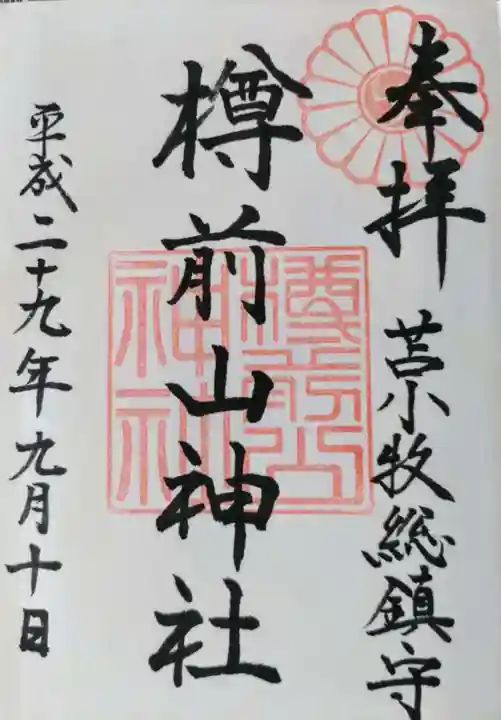 奉拝
苫小牧総鎮守
樽前山神社
樽前山神社
平成二十九年九月十日